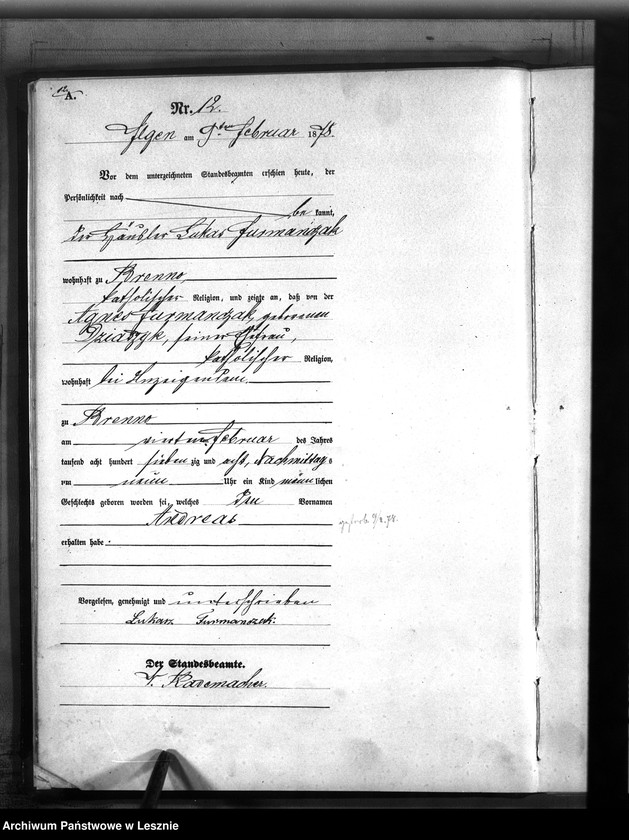 A.
Nr. 12.
Ilgen am 9ten Februar 1878.
Vor dem unterzeichneten Standesbeamten erschien heute, der
Persönlichkeit nach
be kannt,
der Häusler Lukas Furmańczak
wohnhaft zu Brenno
katholischer Religion, und zeigte an, daß von der
Agnes Furmanczak, geborenen
Dziatzyk, seiner Ehefrau,
katholischer Religion,
wohnhaft bei Anzeigendem
zu Brenno
am vierten Februar des Jahres
tausend acht hundert sieben zig und acht, Nachmittag s
um neun Uhr ein Kind männ lichen
Geschlechts geboren worden sei, welches den Vornamen
Andreas
erhalten habe.
Vorgelesen, genehmigt und unterschrieben
Lukasz Furmanczak.
Der Standesbeamte.
Rademacher.
Archiwum Państwowe w Lesznie